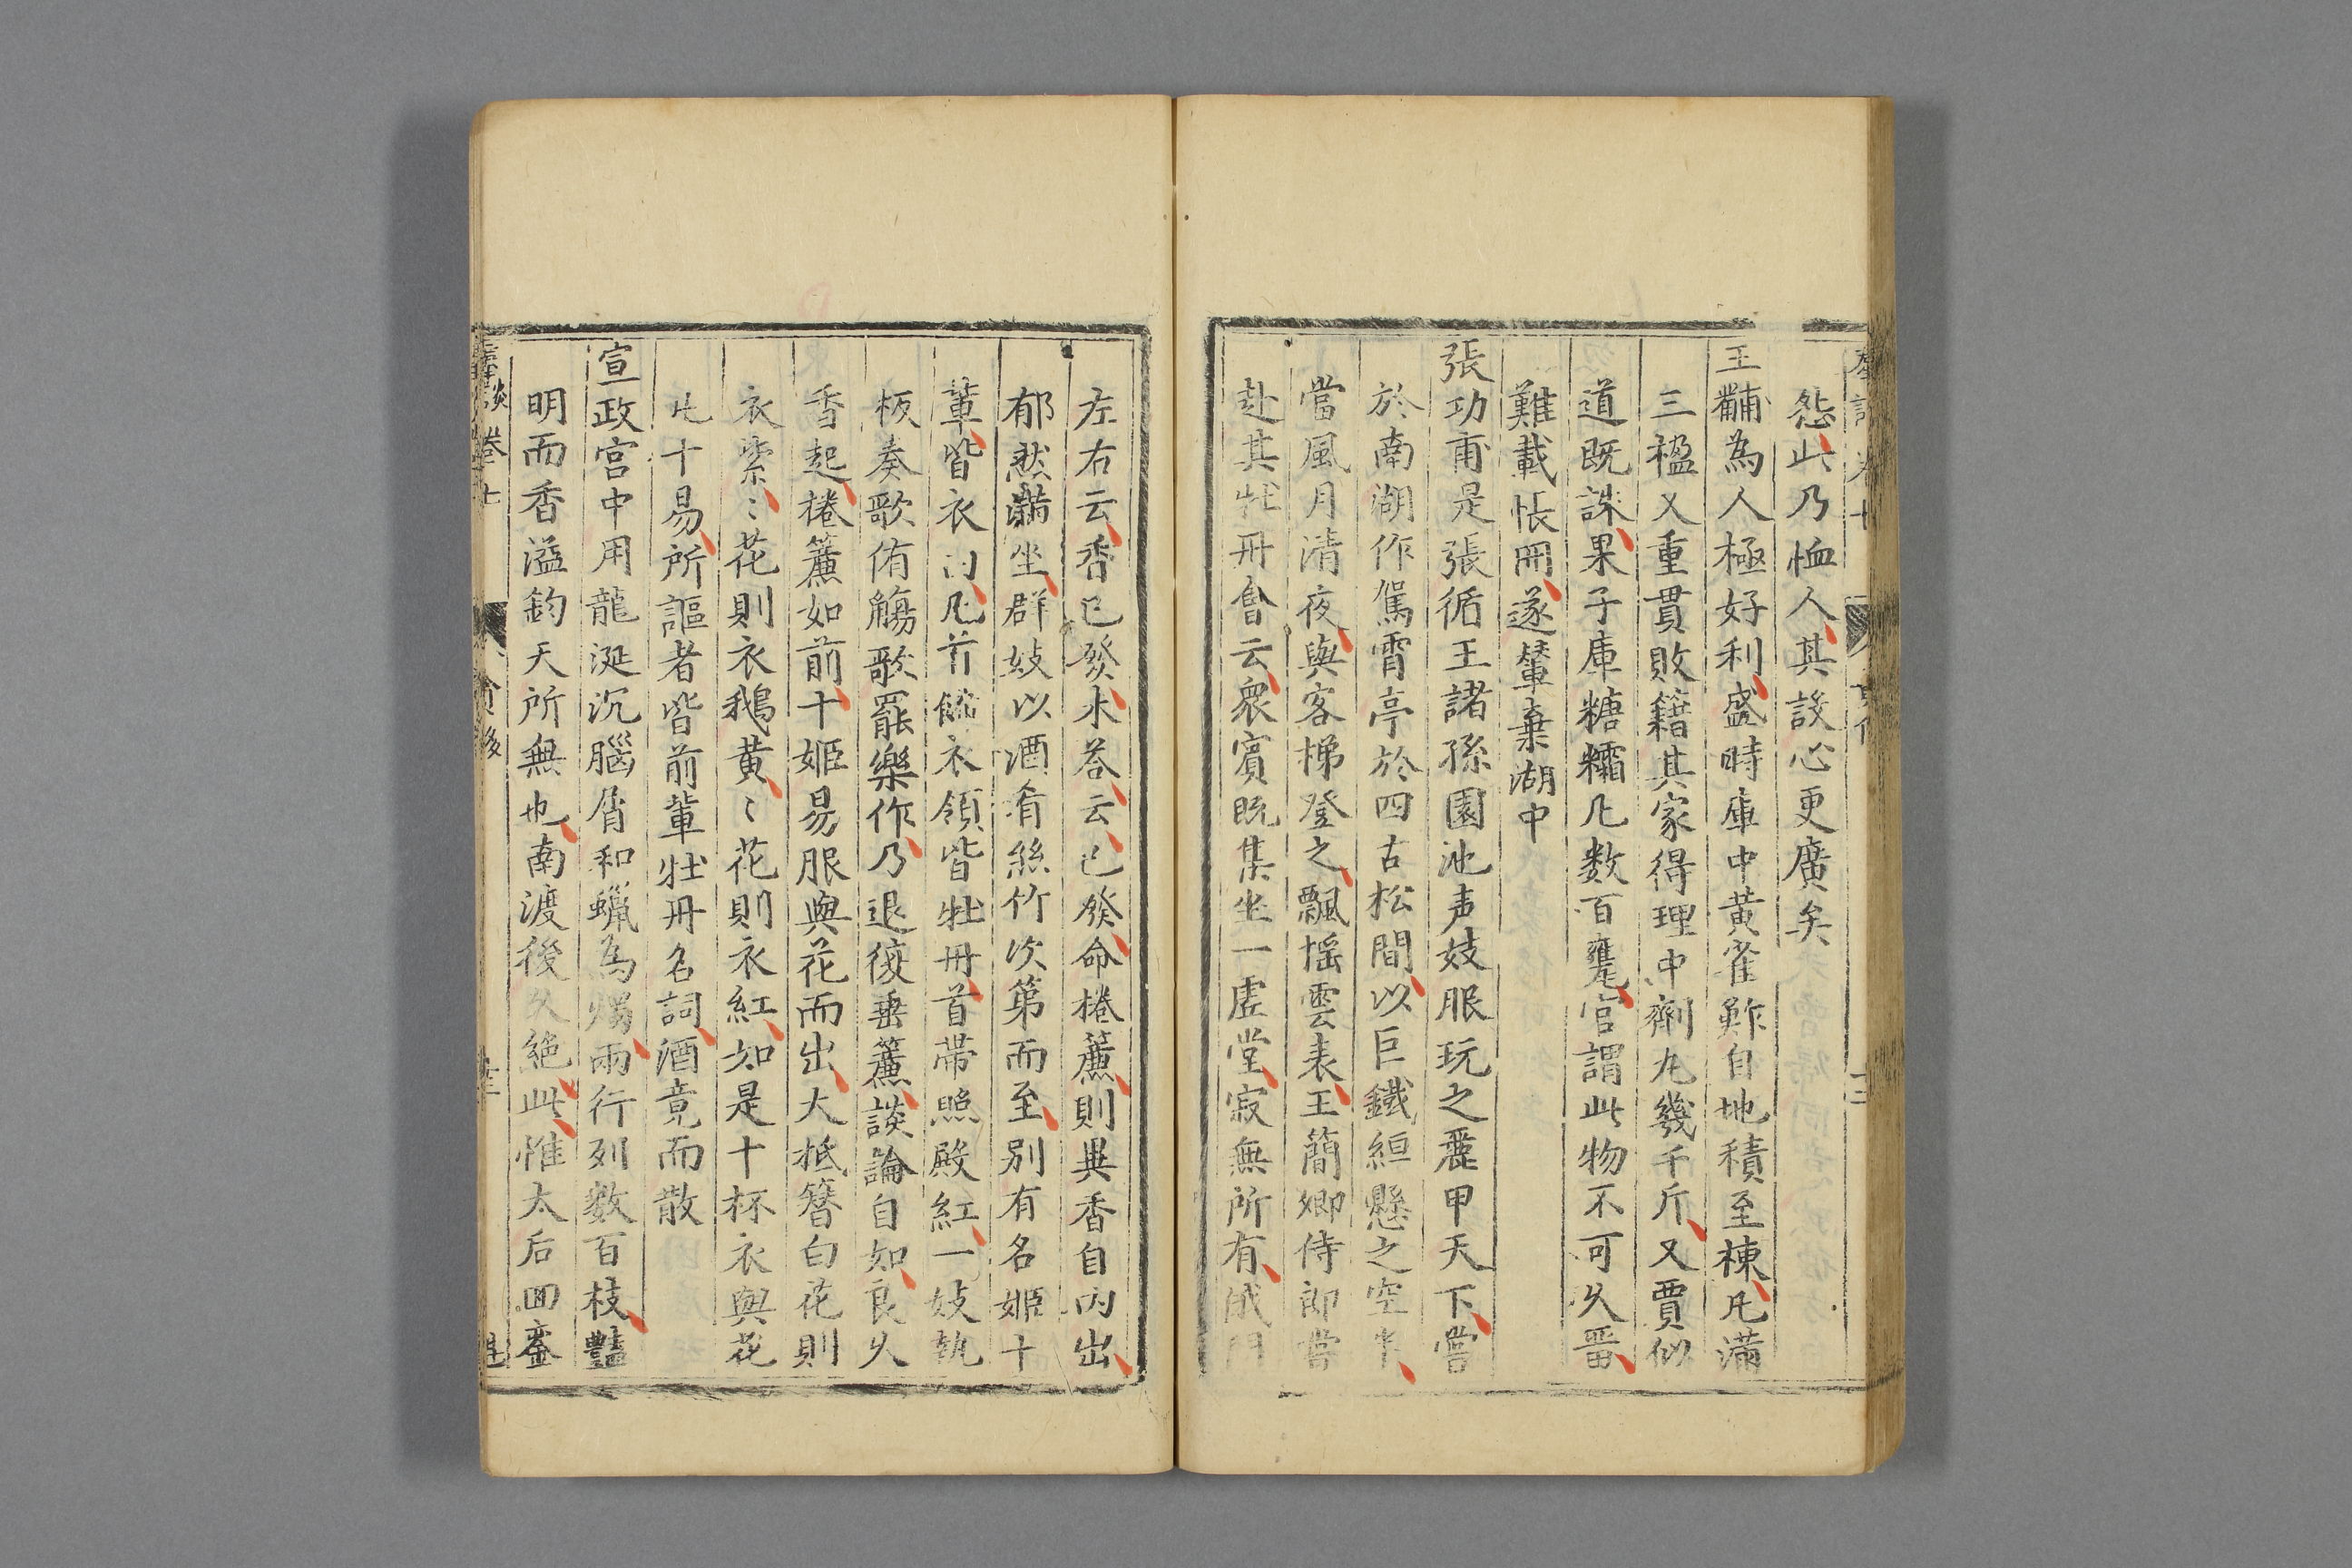 怨此乃恤人其設心更廣矣
王黼為人極好利盛時庫中黃雀鮓自地積至棟凡滿
三楹又重貫敗籍其家得理中劑丸幾千斤又賈似
道既誅果子庫糖霜凡数百甕官謂此物不可久畱
難載帳冊遂輦棄湖中
張功甫是張循王諸孫園池声妓服玩之麗甲天下嘗
於南湖作駕霄亭於四古松間以巨鐵絙懸之空半
當風月清夜與客梯登之飄搖雲表王簡卿侍郎嘗
赴其牡丹會云衆賓既集坐一虛堂寂無所有俄問
左右云香已發未荅云已發命捲簾則異香自內出
郁然滿坐群妓以酒肴絲竹次第而至別有名姬十
輩皆衣白凡首餙衣領皆牡丹首帶照殿紅一妓執
板奏歌侑觴歌罷樂作乃退復垂簾談論自如良久
香起捲簾如前十姬易服與花而出大抵簪白花則
衣紫〻花則衣鵝黃〻花則衣紅如是十杯衣與花
凡十易所謳者皆前輩牡丹名詞酒竟而散
宣政宮中用龍涎沉腦屑和蠟為燭兩行列數百枝豔
明而香溢鈞天所無也南渡後久絕此惟太后回鑾
談 卷七